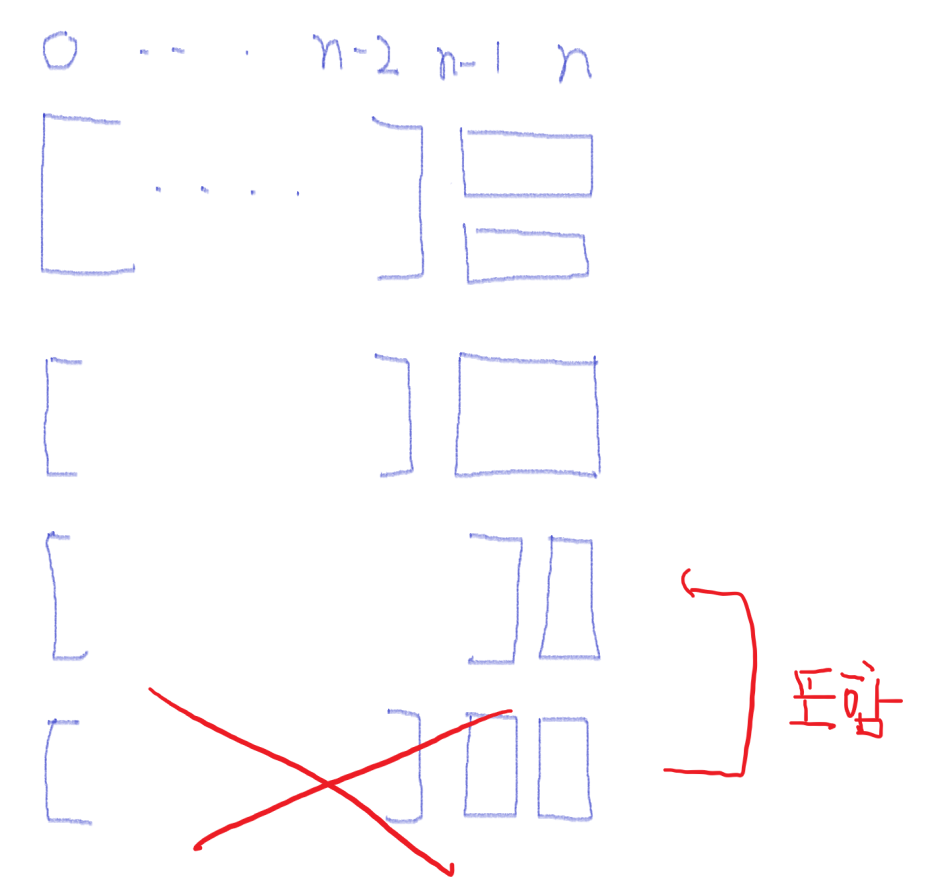 0 ... n-2 n-1 n
....
포함